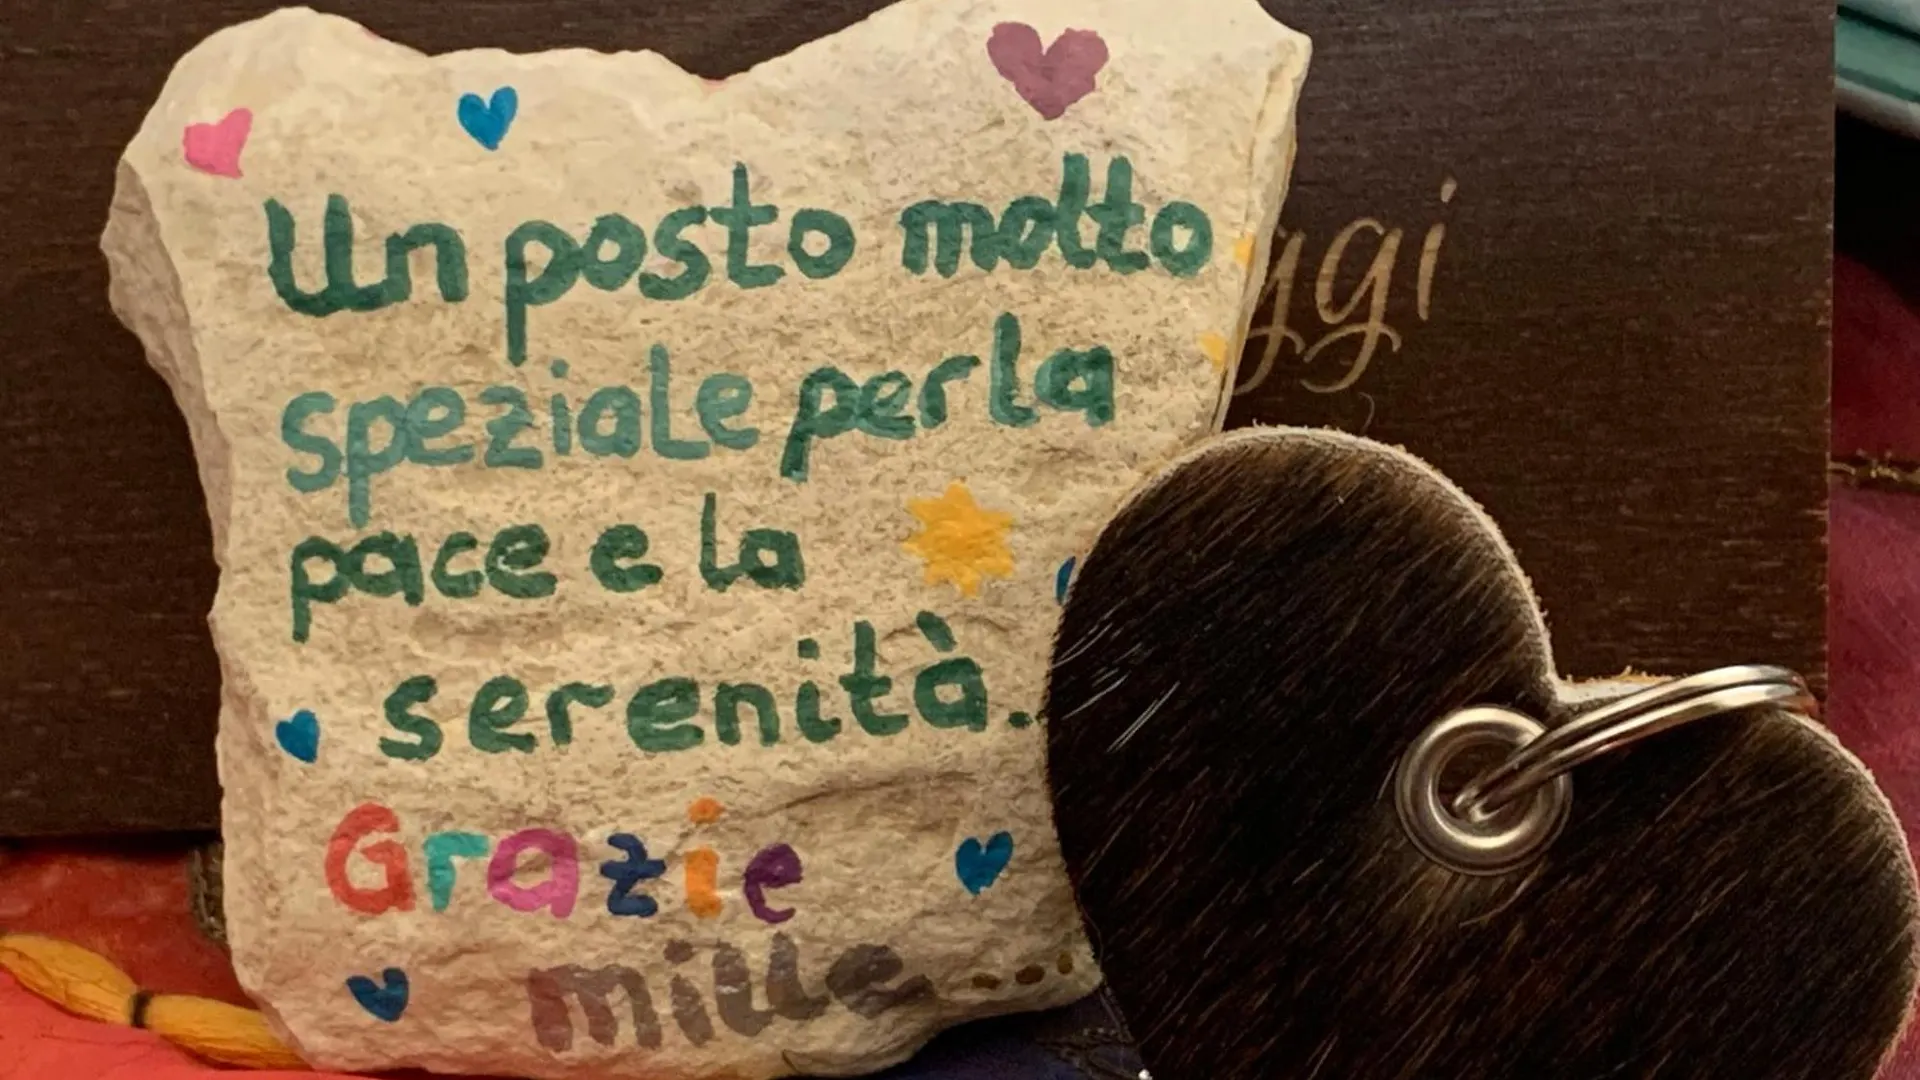 Un posto molto
speziale per la
pace e la
serenità..
Grazie
mille....
ggi